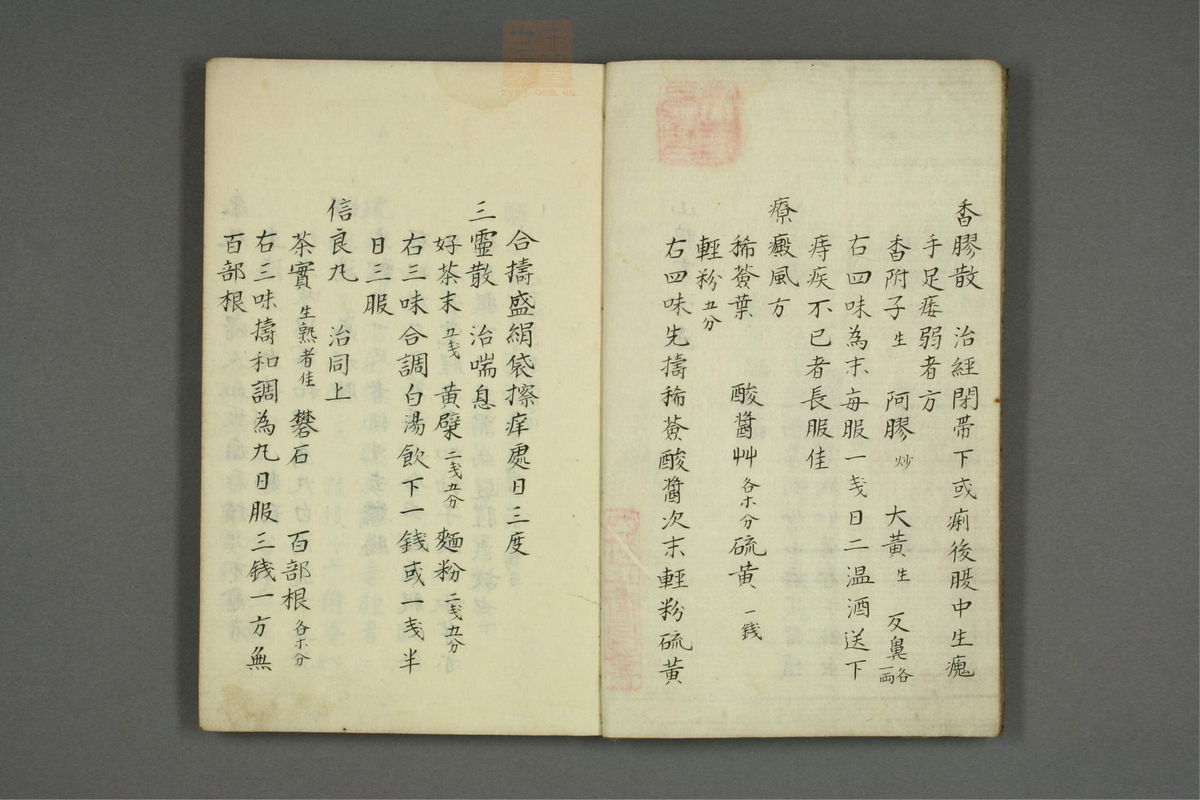 香膠散　治經閉帶下或痢後腹中生塊
手足痿弱者方
香附子生　阿膠炒　大黃生　反鼻各一兩
右四味為末每服一戔日二温酒送下
痔疾不已者長服佳
療癜風方
豨薟葉　酸醬艸各等分　硫黃一錢
輕粉五分
右四味先擣豨薟酸醬次末輕粉硫黃
合擣盛絹袋擦痒處日三度
三靈散　治喘息
好茶末五戔　黃檗二戔五分　麵粉二戔五分
右三味合調白湯飲下一錢或一戔半
日三服
信良丸　治同上
茶實生熟者佳　礬石　百部根各等分
右三味擣和調為丸日服三錢一方無
百部根